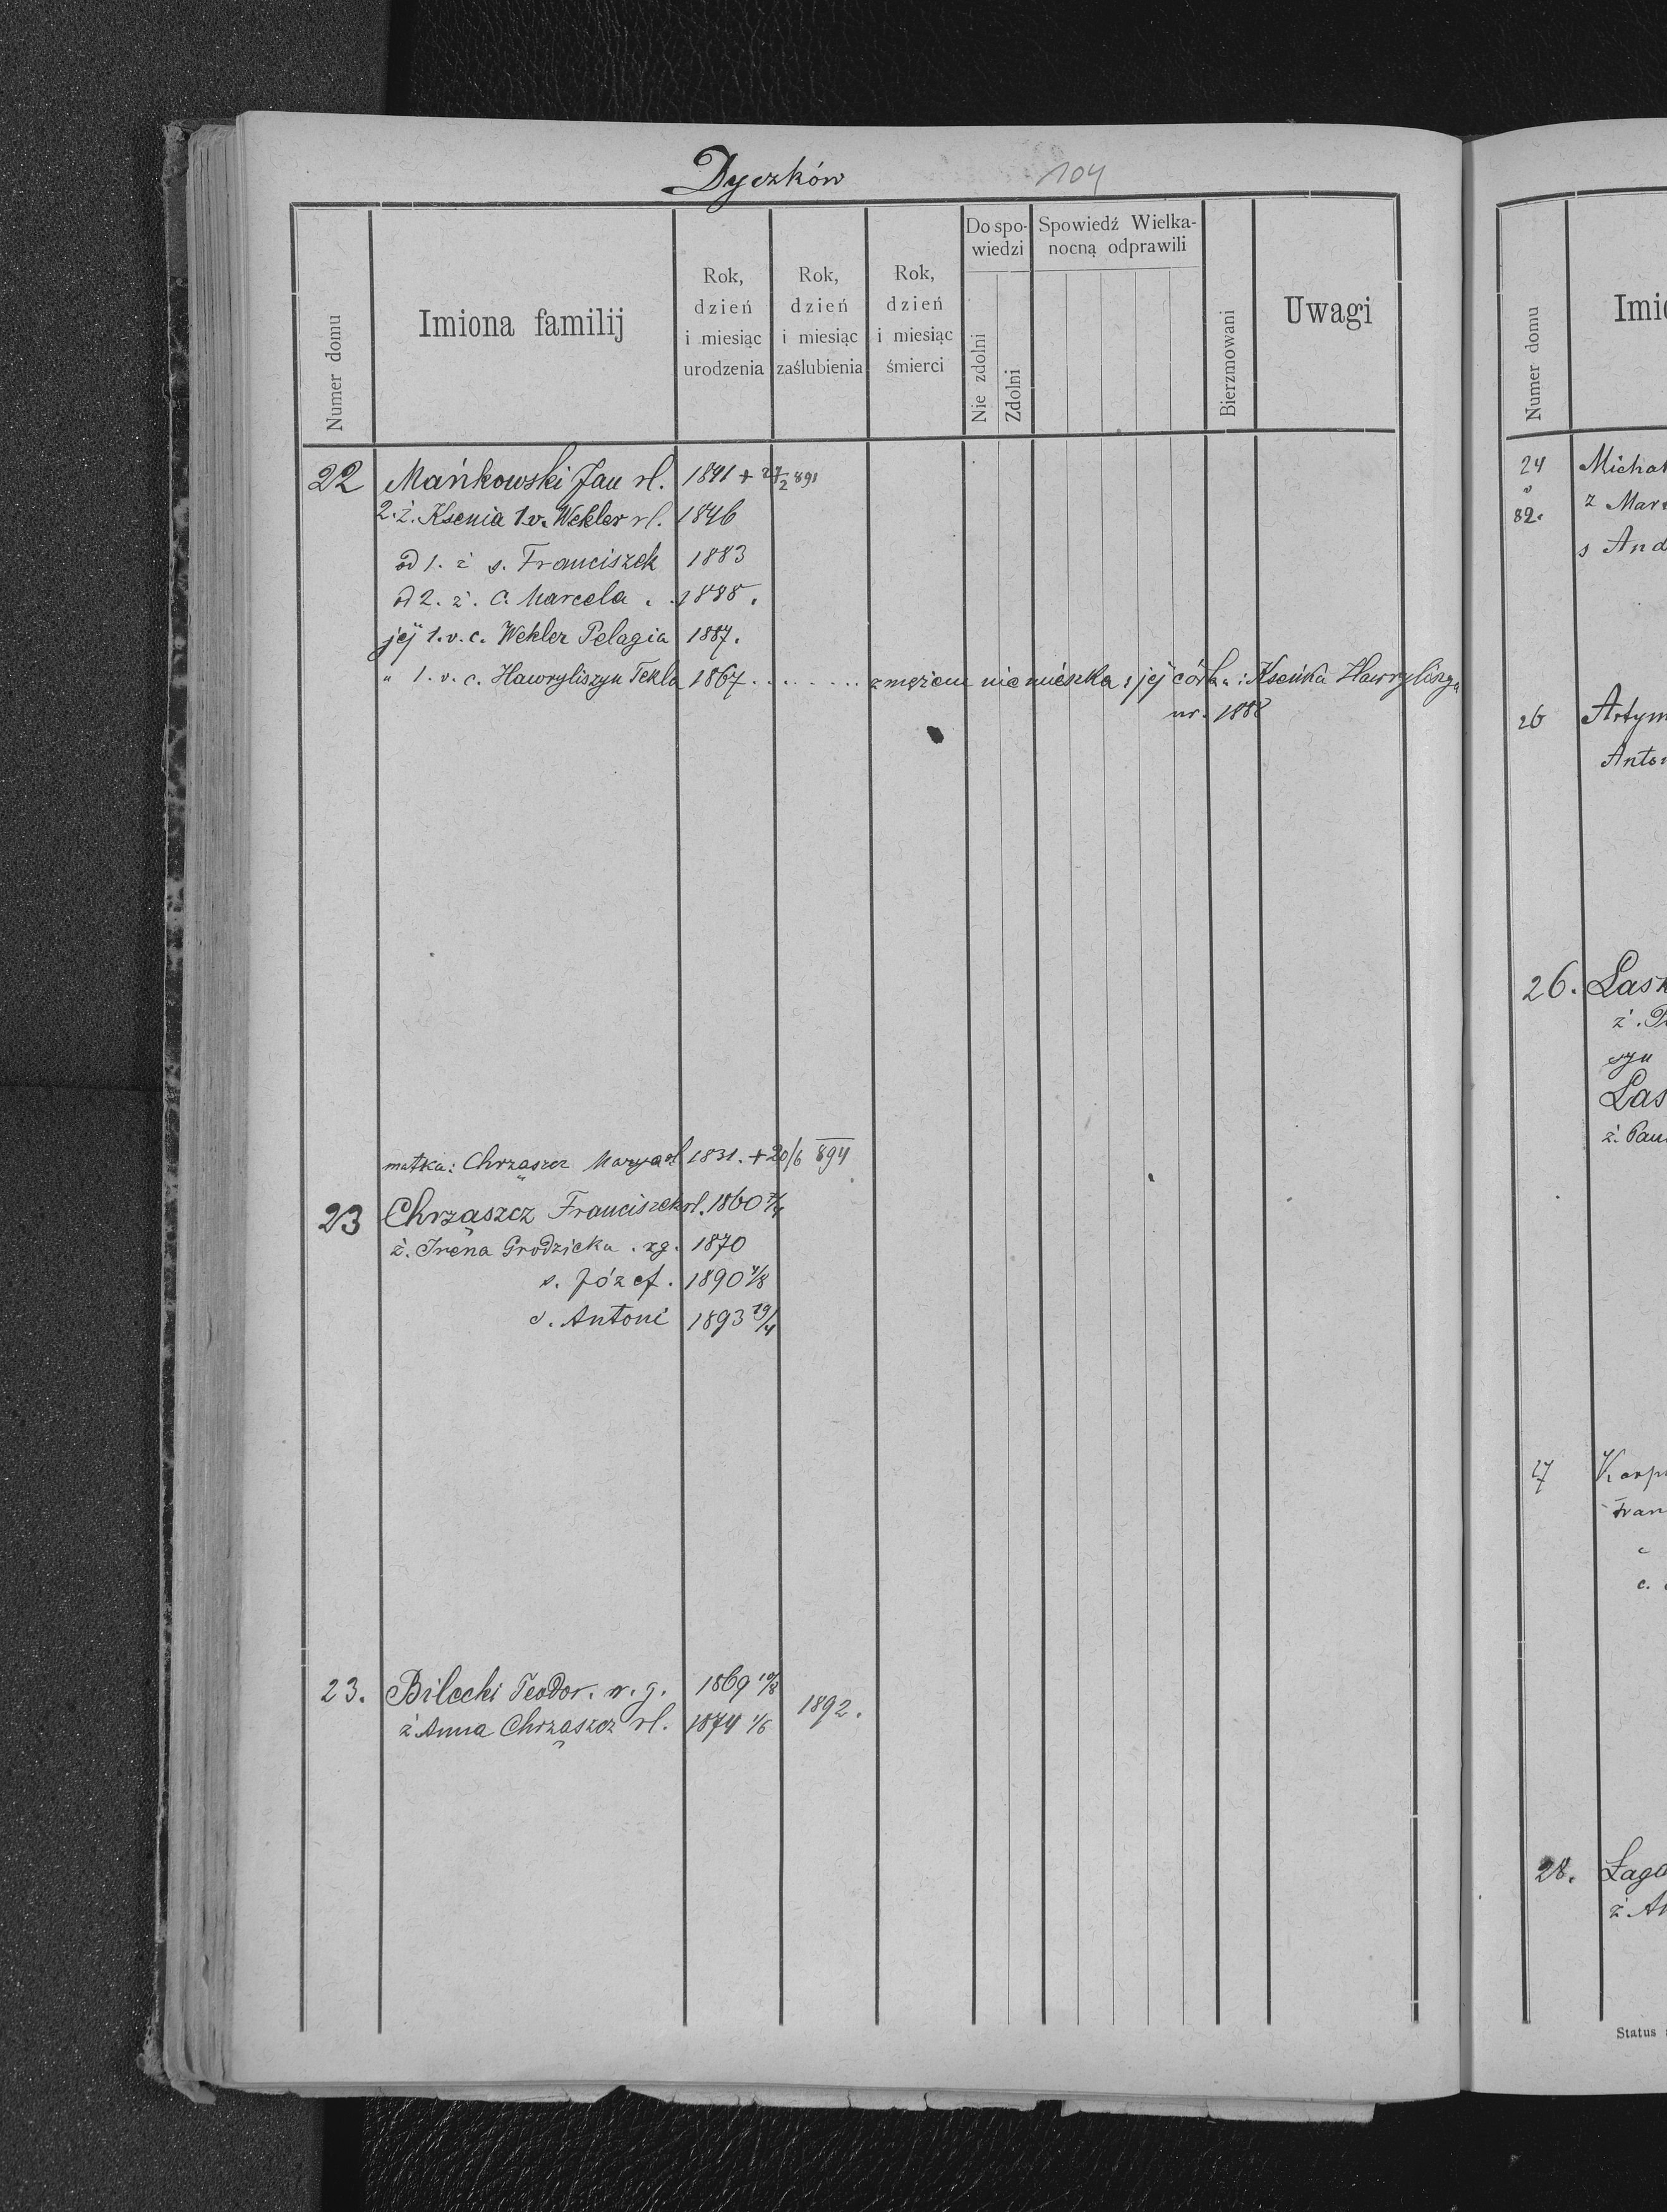 Dyczków 104
Numer domu
Imiona familij
Rok, dzień i miesiąc urodzenia
Rok, dzień i miesiąc zaślubienia
Rok, dzień i miesiąc śmierci
Do spo-
wiedzi
Nie zdolni
Zdolni
Spowiedź Wielka-
nocną odprawili
Bierzmowani
Uwagi
22 Mańkowski Jan rl. 1841 + 27/2 891
2. ż. Ksenia 1v. Wekler rl. 1846
od 1. ż s. Franciszek 1883
od 2. ż. c. Marcela . . 1888.
jej 1. v. c. Wekler Pelagia 1887.
" 1. v. c. Hawryliszyn Tekla 1867 . . . . . . . . z mężem nie mieszka; jej córka: Kseńka Hawryliszyn
ur. 1888
matka: Chrząszcz Marya rl 1831. + 20/6 894
23 Chrząszcz Franciszek rl. 1860
ż. Irena Grodzicka . rg. 1870
s. Józef. 1890 4/8
s. Antoni 1893 29/4
23. Bilecki Teodor. r. g. 1869 10/8
ż Anna Chrząszcz rl. 1874 1/6
1892.
Numer domu
Imio
24
v
82.
Michał
z Mar
s And
26 Artym
Anto
26. Lask
syn
Las
ż. Pau
27 Karp
Fran
c
c.
28. Łago
ż. An
Status